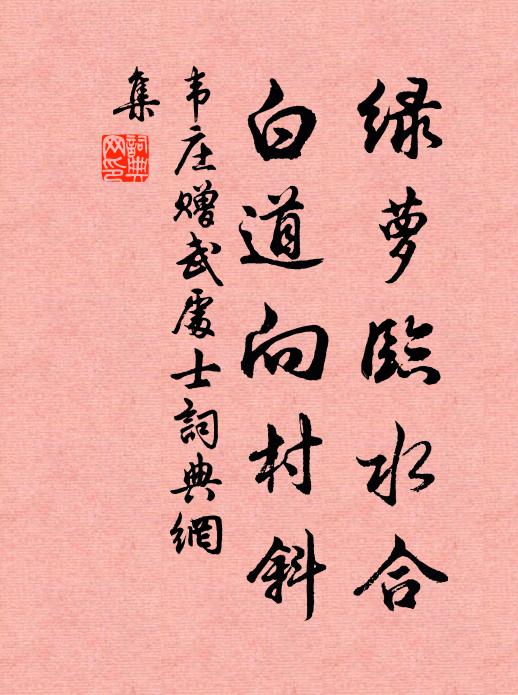 绿萝臨水合
白道向村斜
韦庄赠武處士詞典網
集
詞典网印